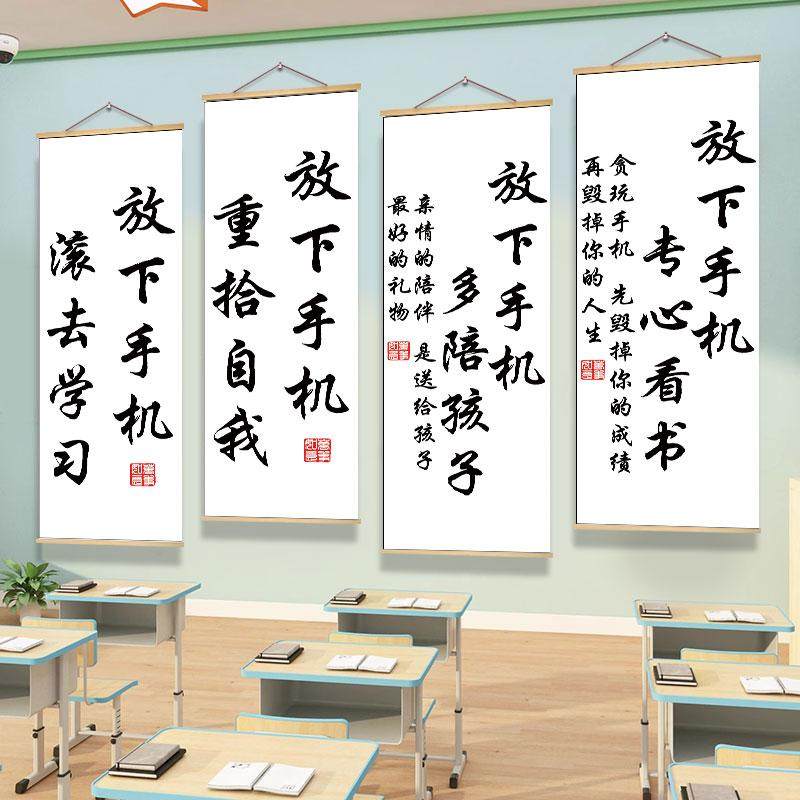 放下手机
滚去学习
放下手机
重拾自我
放下手机
多陪孩子
亲情的陪伴 是送给孩子
最好的礼物
放下手机
专心看书
贪玩手机 先毁掉你的成绩
再毁掉你的人生